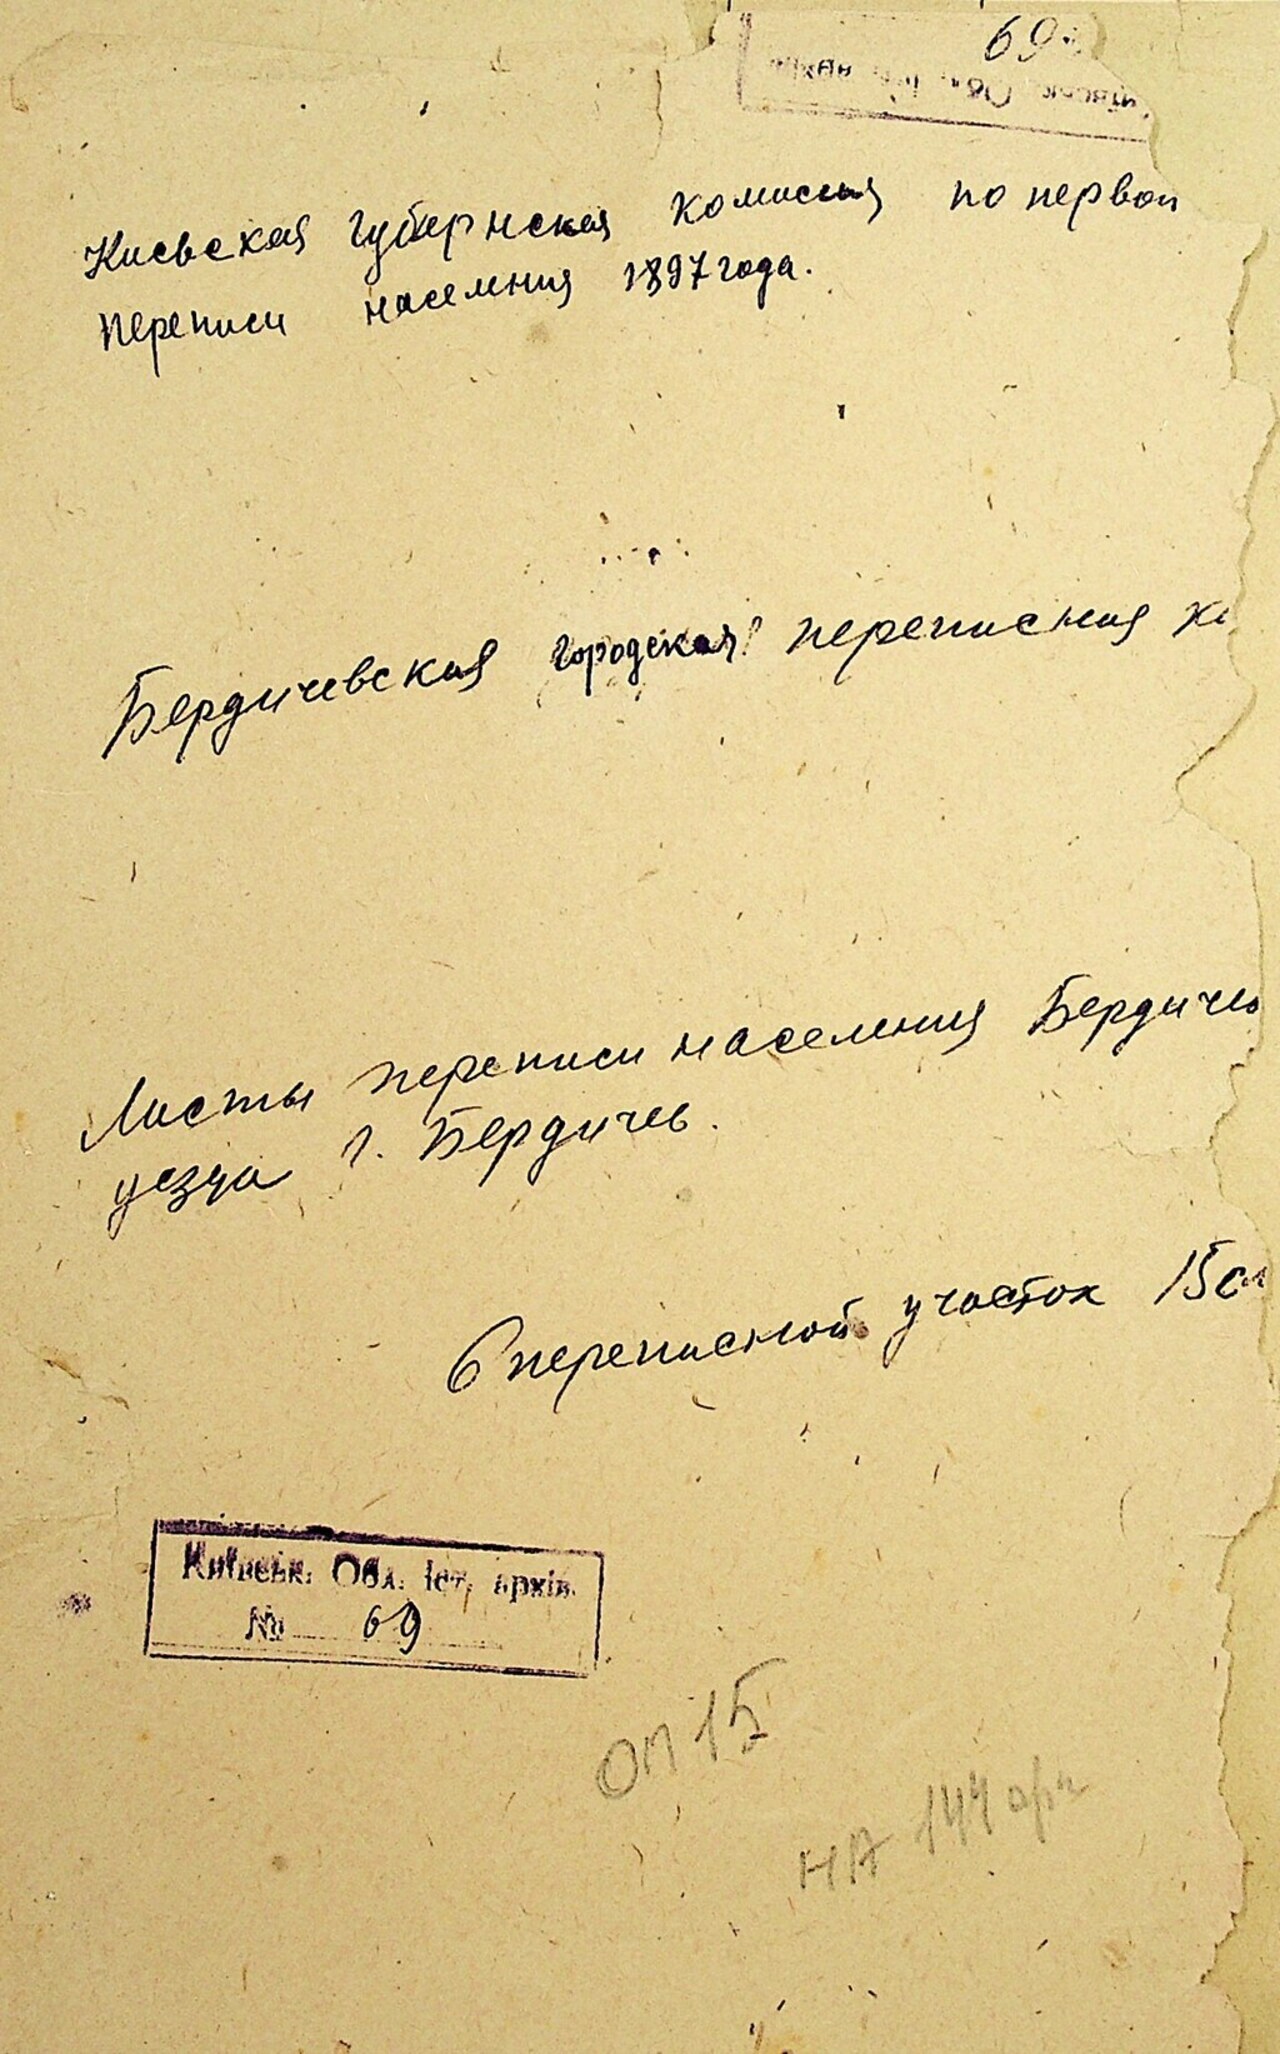 69
Київськ. Обл. Іст. архів.
Киевская губернская комиссия по первой
переписи населения 1897 года.
Бердичевская городская переписная к
Листы переписи населения Бердичев
уезда г. Бердичев.
6 переписной участок 15
Київськ. Обл. Іст. архів.
№ 69
ОП 15
НА 144 арк